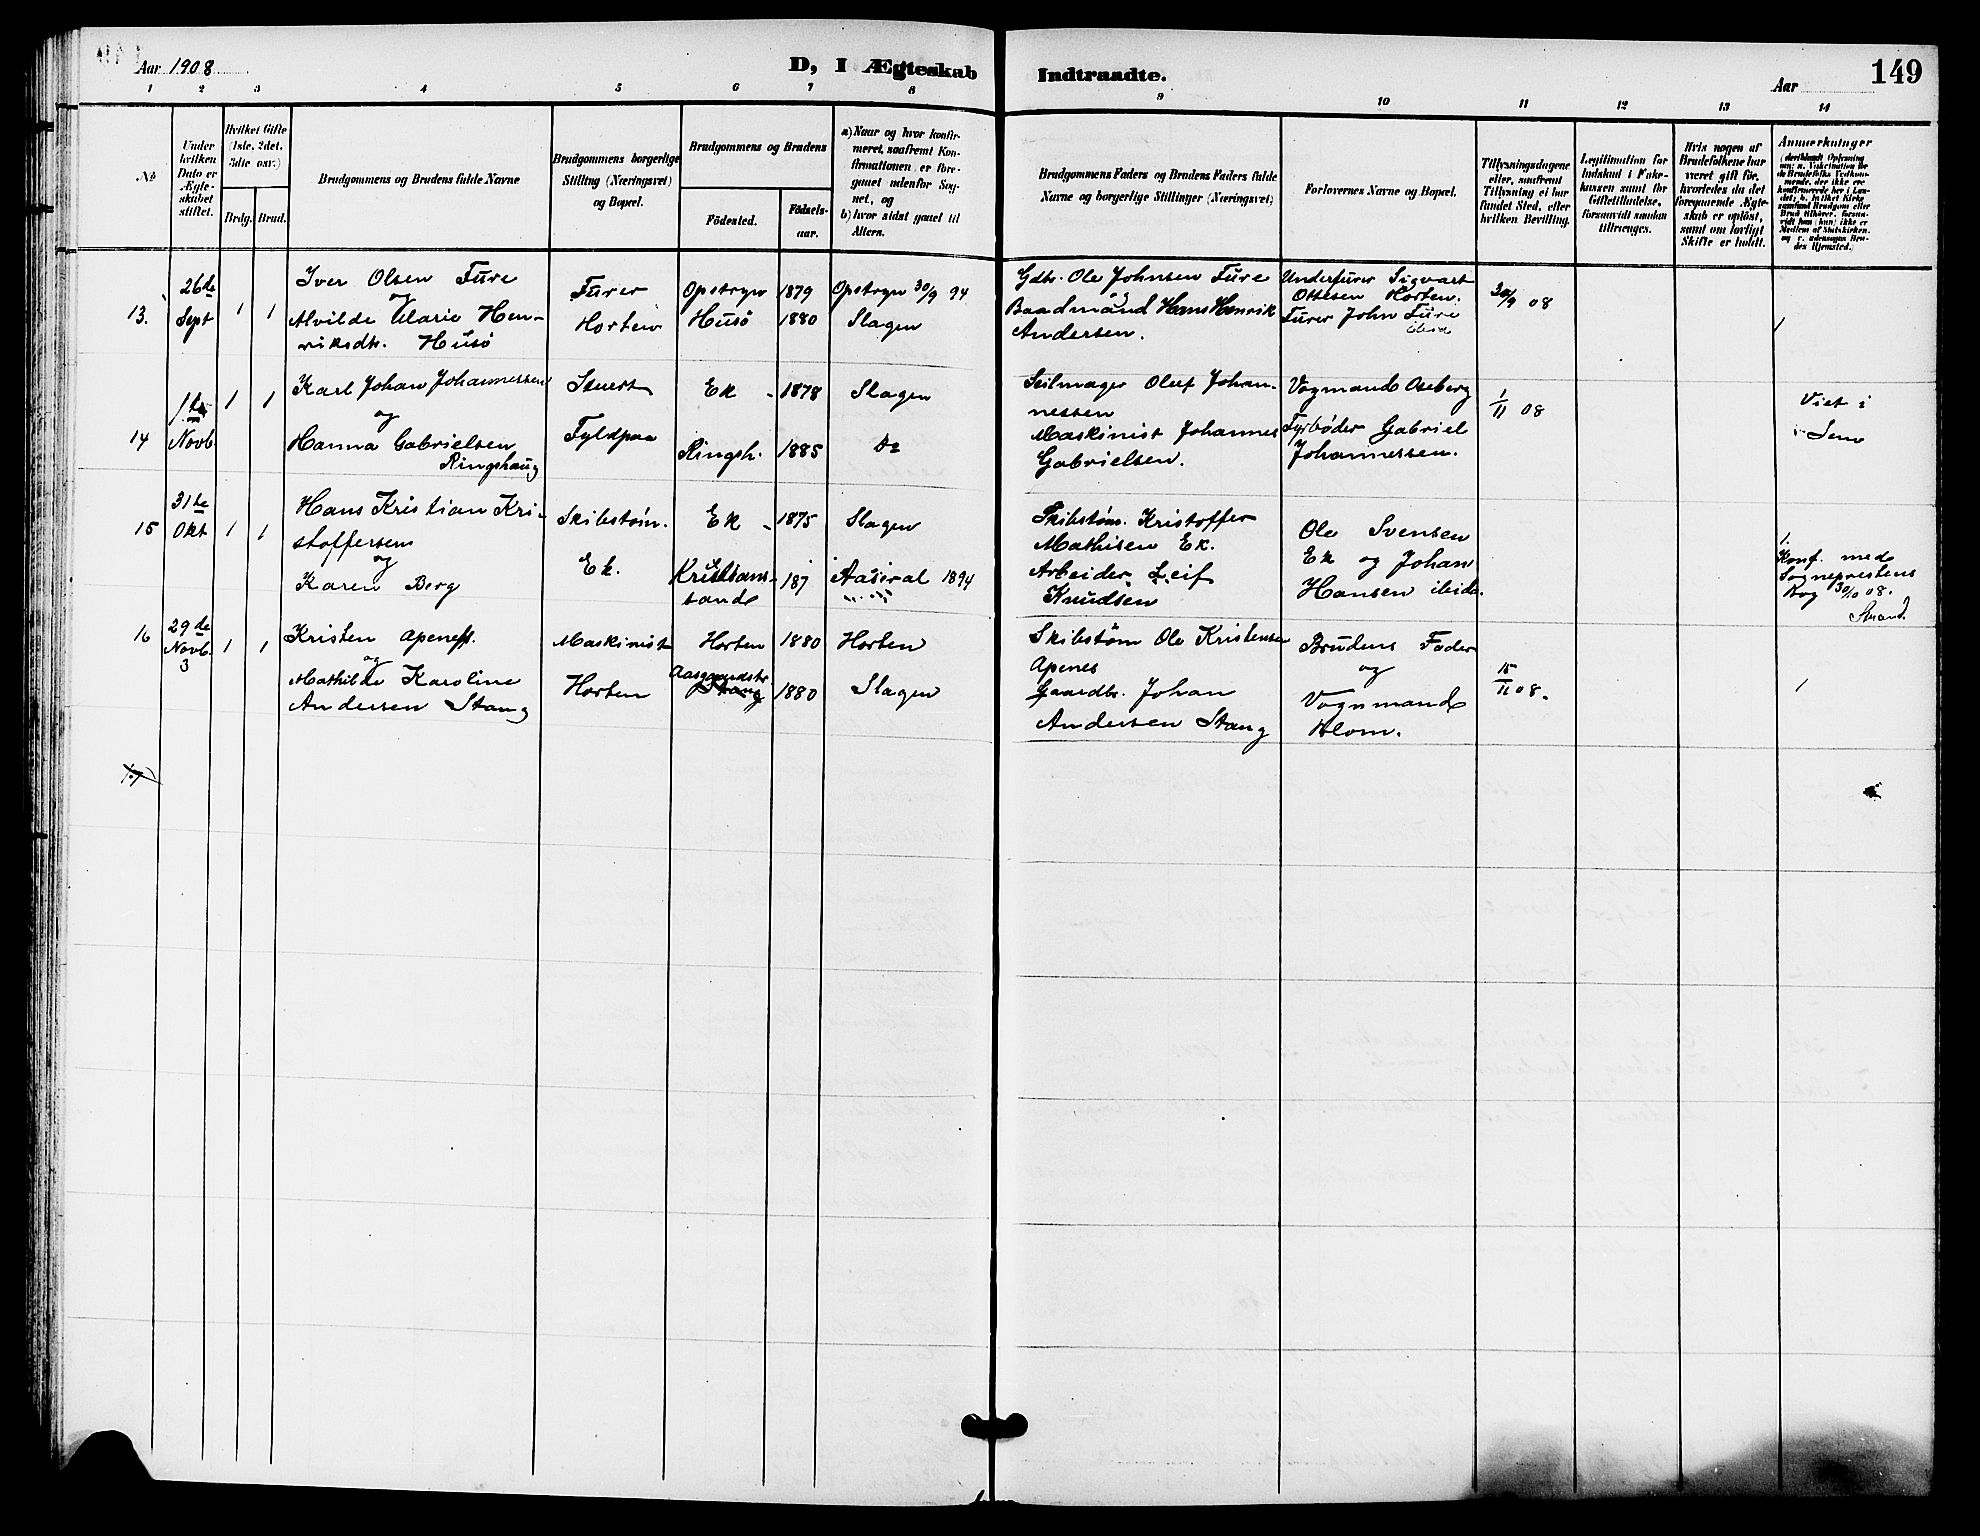 Aar 1908
D, I Ægteskab
Indtraadte.
Aar
149
1 2 3 4 5 6 7 8
9 10 11 12 13 14
No
Under
hvilken
Dato er
Ægte-
skabet
stiftet.
Hvilket Gifte
(1ste, 2det,
3die osv.)
Brdg. Brud.
Brudgommens og Brudens fulde Navne
Brudgommens borgerlige
Stilling (Næringsvei)
og Bopæl.
Brudgommens og Brudens
Födested.
Födsels-
aar.
a) Naar og hvor konfir-
meret, saafremt Kon-
firmationen er fore-
gaaet udenfor Sog-
net, og
b) hvor sidst gaaet til
Alters.
Brudgommens Faders og Brudens Faders fulde
Navne og borgerlige Stillinger (Næringsvei)
Forlovernes Navne og Bopæl.
Tillysningsdagene
eller, saafremt
Tillysning ei har
fundet Sted, efter
hvilken Bevilling.
Legitimation for
Indskud i Enke-
kassen samt for
Giftetilladelse,
forsaavidt saadan
tiltrænges.
Hvis nogen af
Brudefolkene har
været gift før,
hvorledes da det
foregaaende Ægte-
skab er opløst,
samt om lovligt
Skifte er holdt.
Anmærkninger
13.
26de
Sept
1 1
Iver Olsen Füre
og
Alvilde Marie Hen-
riksdtr. Husö
Fürer
Horten
Opstryn 1879 Opstryn 30/9 94
Husö 1880 Slagen
Gdbr. Ole Johnsen Füre
og
Baadmand Hans Henrik
Andersen.
Underfurer Sigvart
Ottesen Horten.
Furer John Füre
ibid
20/9 08
1
14
1ste
Novb
1 1
Karl Johan Johannessen
og
Hanna Gabrielsen
Ringshaug
Stuert
Fyldpaa
Ek - 1878 Slagen
Ringsh. 1885 Do
Seilmager Oluf Johan-
nessen
Maskinist Johannes
Gabrielsen.
Vognmand Oseberg
Fyrbøder Gabriel
Johannessen.
1/11 08
Viet i
Sem
15
31te
Okt
1 1
Hans Kristian Kri-
stoffersen
og
Karen Berg
Skibstøm.
Ek.
Ek - 1875 Slagen
Kristians-
sand
187 Aaseral 1894
Skibstøm. Kristoffer
Mathisen Ek.
Arbeider Leif
Knudsen
Ole Svensen
Ek og Johan
Hansen ibid.
1.
Konf. med
Sogneprestens
Bog 30/10 08.
Strand
16
29de
Novb.
3
1 1
Kristen Apenes
og
Mathilde Karoline
Andersen Stang
Maskinist
Horten
Horten 1880 Horten
Aasgaardstr.
Stang 1880 Slagen
Skibstöm Ole Kristensen
Apenes
Gaardbr. Johan
Andersen Stang
Brudens Fader
og
Vognmand
Blom.
15/11 08.
1
17)